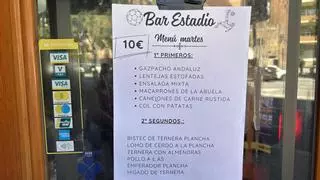 Bar Estadio
Menú martes
10€
1º PRIMEROS:
• GAZPACHO ANDALUZ
• LENTEJAS ESTOFADAS
• ENSALADA MIXTA
• MACARRONES DE LA ABUELA
• CANELONES DE CARNE RUSTIDA
• COL CON PATATAS
2º SEGUNDOS.:
BISTEC DE TERNERA PLANCHA
LOMO DE CERDO A LA PLANCHA
TERNERA CON ALMENDRAS
POLLO A L'AS
EMPERADOR PLANCHA
HIGADO DE TERNERA
VISA
VISA